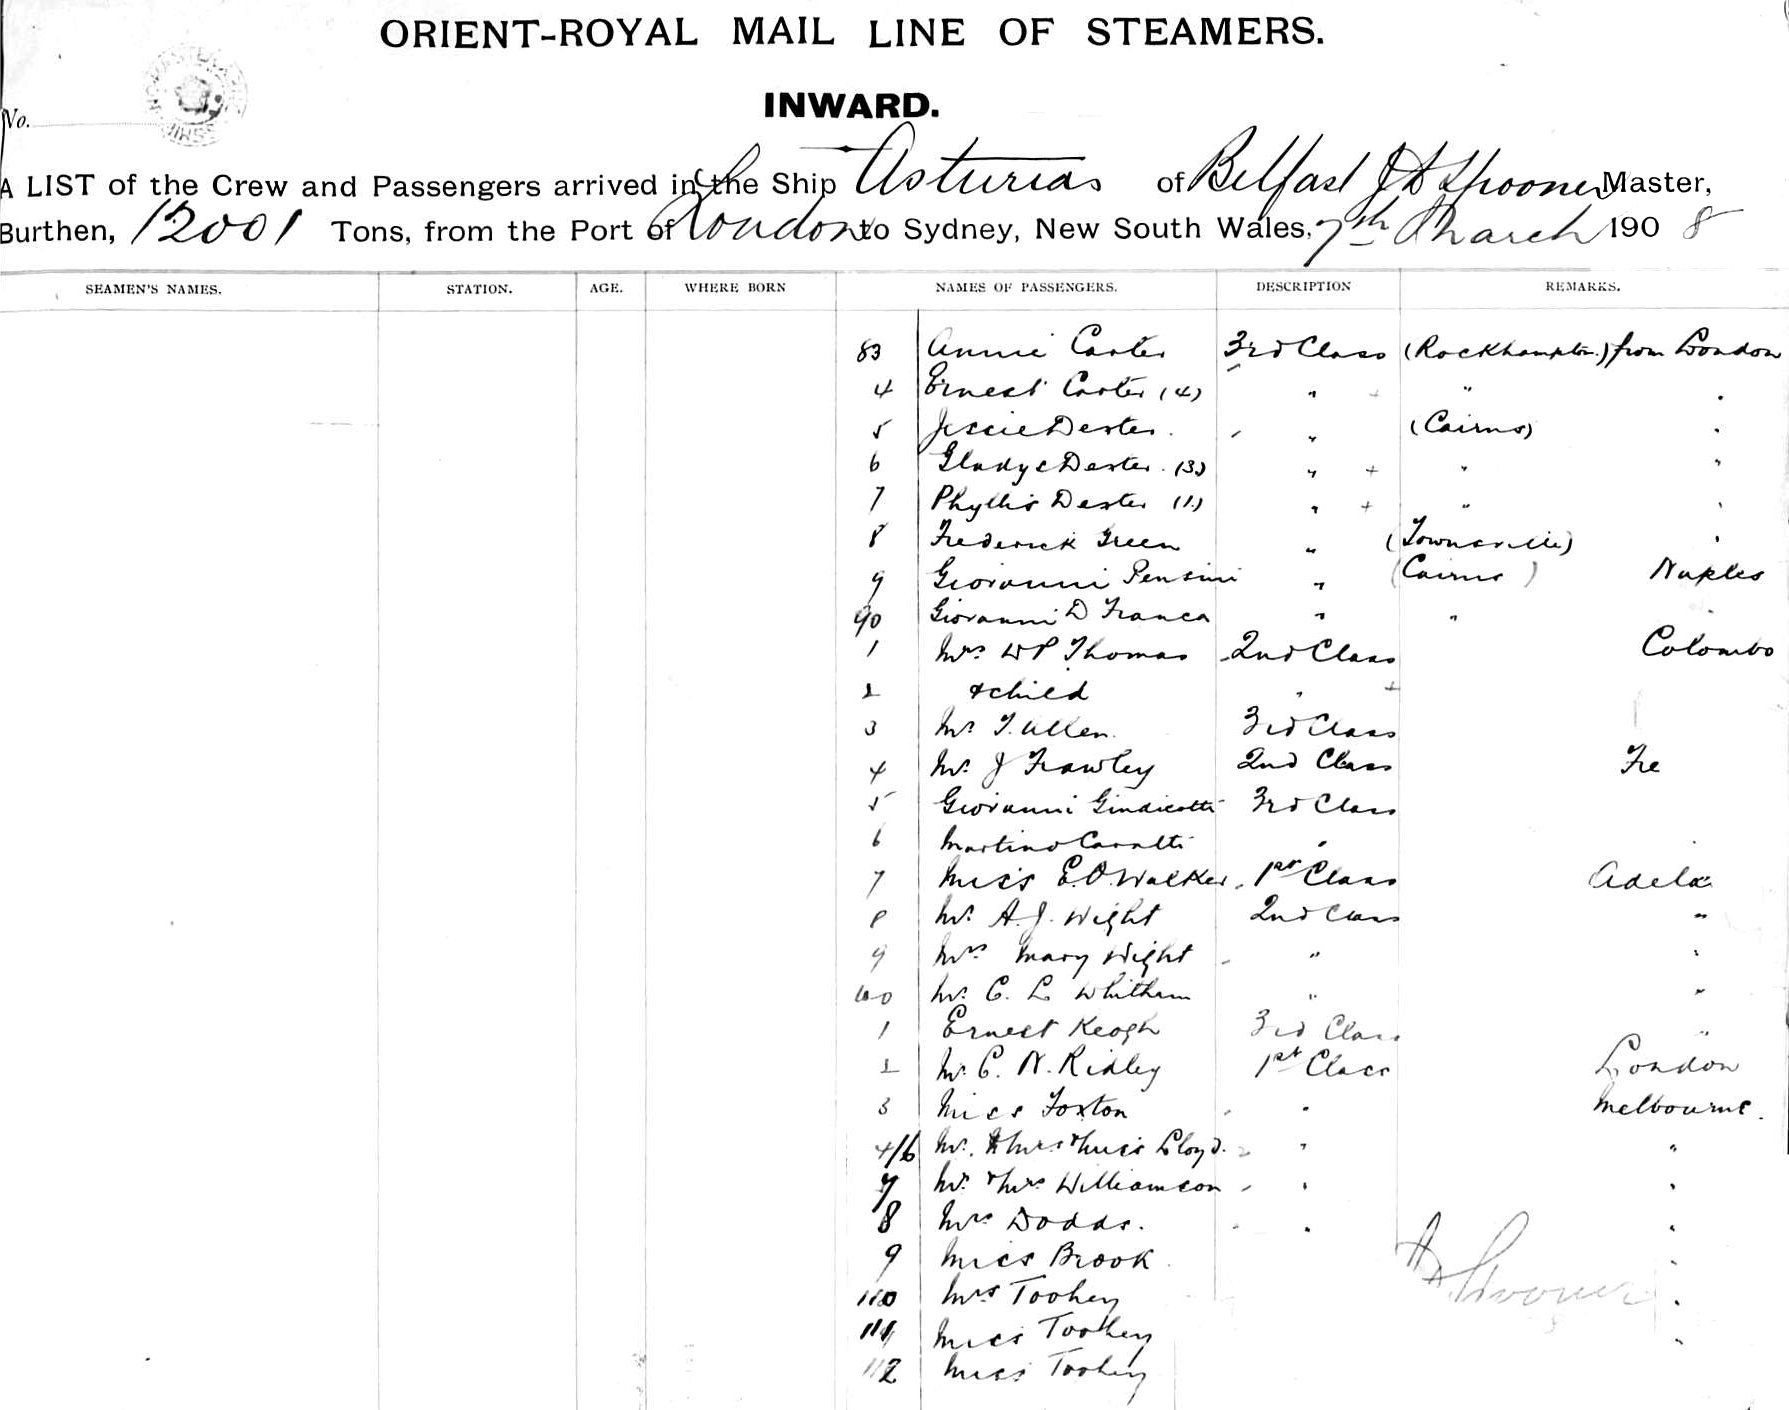 ORIENT-ROYAL MAIL LINE OF STEAMERS.
INWARD.
No.
A LIST of the Crew and Passengers arrived in the Ship Asturias of Belfast J D Spooner Master,
Burthen, 12001 Tons, from the Port of London to Sydney, New South Wales, 7th March 1908
SEAMEN'S NAMES. STATION. AGE. WHERE BORN NAMES OF PASSENGERS. DESCRIPTION REMARKS.
83 Annie Carter 3rd Class (Rockhampton) from London
4 Ernest Carter (4) " + " "
5 Jessie Dexter. " (Cairns) "
6 Gladys Dexter. (3) " + " "
7 Phyllis Dexter (1) " + " "
8 Frederick Green " (Townsville) "
9 Giovanni Pensini " (Cairns) Naples
90 Giovanni D Franca " " "
1 Mrs W P Thomas 2nd Class Colombo
2 & child " +
3 Mr T. Allen. 3rd Class
4 Mr. J Frawley 2nd Class Fre
5 Giovanni 3rd Class
6 Martino "
7 Miss E.O. Walker 1st Class Adela
8 Mr. A. J. Wight 2nd Class "
9 Mrs Mary Wight " "
Mr. C. L. Whitham " "
1 Ernest Keogh 3rd Class "
2 Mr. C. N. Ridley 1st Class London
3 Miss Foxton " Melbourne.
4/6 Mr. & Mrs & Miss Lloyd. " "
7 Mr. & Mrs Williamson " "
8 Mrs Dodds. " "
9 Miss Brook "
110 Mrs Toohey "
111 Miss Toohey "
112 Miss Toohey
Spooner